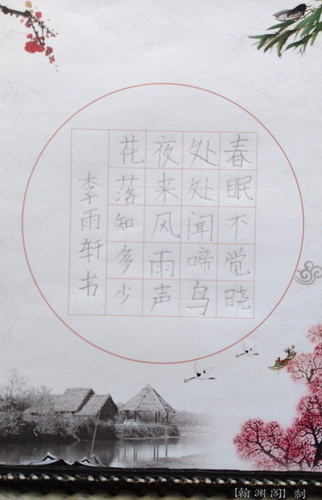 春眠不觉晓
处处闻啼鸟
夜来风雨声
花落知多少
李雨轩书
【翰渊阁】制